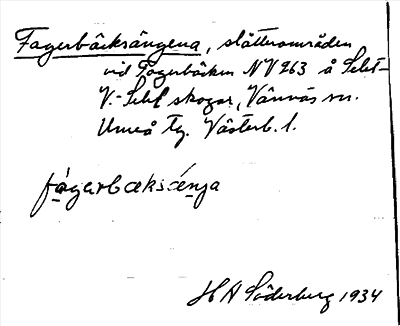 Fagerbäcksängena, slåtterområden
vid Fagerbäcken NV 263 å Selet-
V.-Selet skogar, Vännäs sn.
Umeå tg. Västerb. l.
fágərbæksǽnja
H A Söderberg 1934